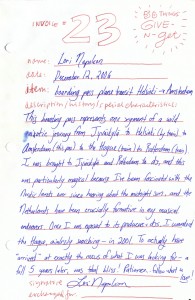 INVOICE # 23 BE THINGS
GIVE
N-get
name: Lori Napoleon
date: December 12, 2016
item: boarding pass plane transit Helsinki → Amsterdam
description/history/special characteristics:
This boarding pass represents one segment of a wild
journey from Jyväskylä to Helsinki (by train) to
Amsterdam (this pass) to the Hague (train) to Rotterdam (train)
I was brought to Jyväskylä and Rotterdam to dj, and this
was particularly magical because I've been fascinated with the
Arctic lands ever since hearing about the midnight sun, and the
Netherlands have been crucially formative in my musical
endeavors. Once I was agreed to be produced & djs, I wandered
the Hague aimlessly searching – in 2001. To actually have
'arrived' at exactly the essence of what I was looking for – a
full 5 years later, was total bliss!
signature Lori Napoleon
exchanged for: